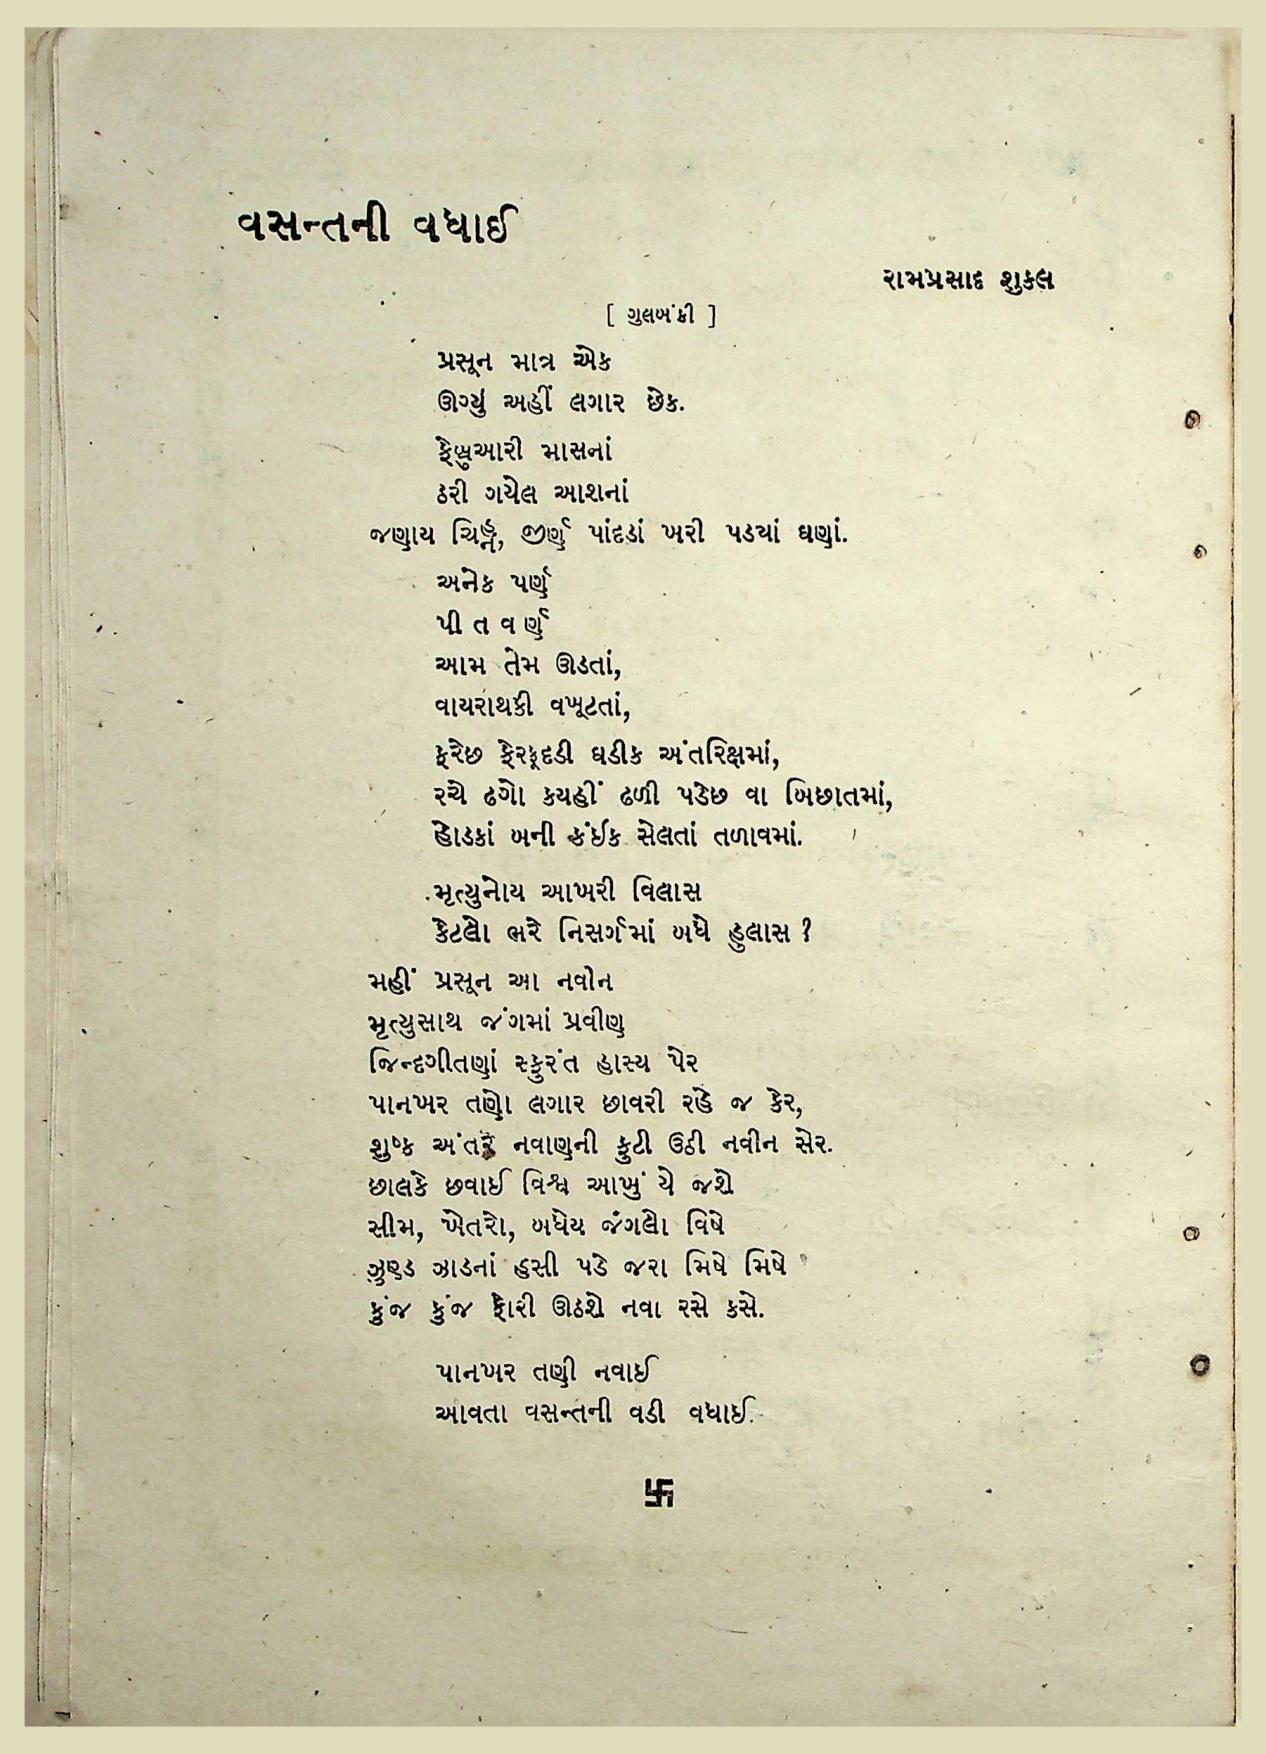 વસન્તની વધાઈ
રામપ્રસાદ શુકલ
[ ગુલબંકી ]
પ્રસૂન માત્ર એક
ઊગ્યું અહીં લગાર છેક.
ફેબ્રુઆરી માસનાં
ઠરી ગયેલ આશનાં
જણાય ચિહ્ન, જીર્ણ પાંદડાં ખરી પડયાં ઘણાં.
અનેક પર્ણ
પી ત વ ર્ણ
આમ તેમ ઊડતાં,
વાયરાથકી વખૂટતાં,
ફરેછ ફેરફૂદડી ઘડીક અંતરિક્ષમાં,
રચે ઢગો કયહીં ઢળી પડેછ વા બિછાતમાં,
હોડકાં બની કંઈક સેલતાં તળાવમાં.
મૃત્યુનોય આખરી વિલાસ
કેટલો ભરે નિસર્ગમાં બધે હુલાસ ?
મહીં પ્રસૂન આ નવીન
મૃત્યુસાથ જંગમાં પ્રવીણ
જિન્દગીતણાં સ્ફુરંત હાસ્ય પેર
પાનખર તણો લગાર છાવરી રહે જ કેર,
શુષ્ક અંતરે નવાણની ફુટી ઉઠી નવીન સેર.
છાલકે છવાઈ વિશ્વ આખું યે જશે
સીમ, ખેતરો, બધેય જંગલો વિષે
ઝુણ્ડ ઝાડનાં હસી પડે જરા મિષે મિષે
કુંજ કુંજ ફોરી ઊઠશે નવા રસે કસે.
પાનખર તણી નવાઈ
આવતા વસન્તની વડી વધાઈ.